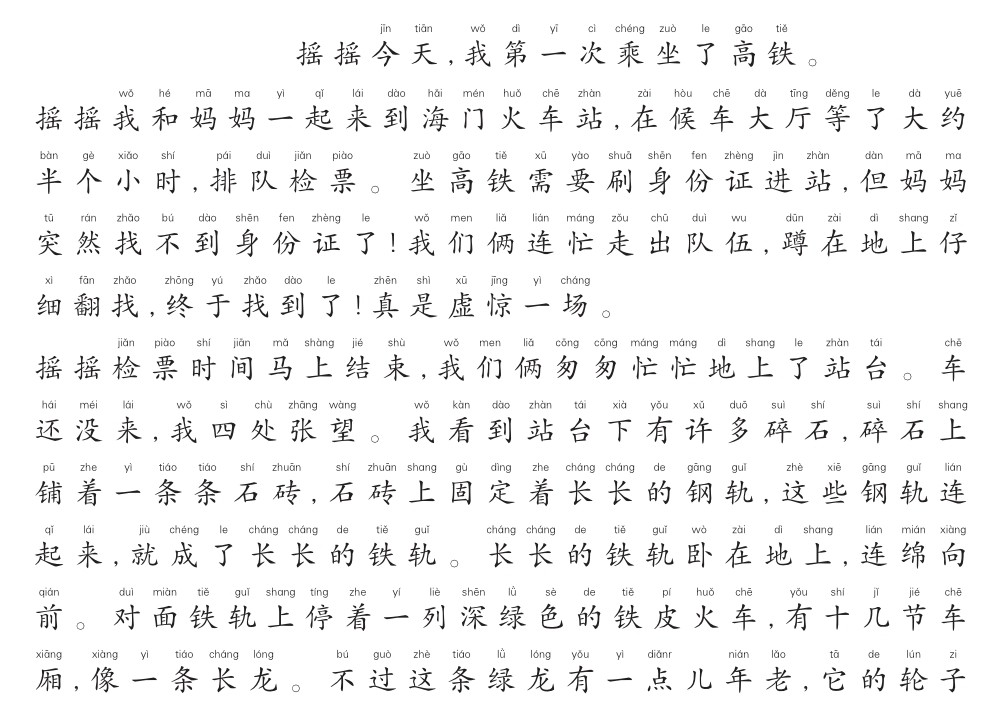 jīn tiān wǒ dì yī cì chéng zuò le gāo tiě
摇摇今天,我第一次乘坐了高铁。
wǒ hé mā ma yì qǐ lái dào hǎi mén huǒ chē zhàn zài hòu chē dà tīng děng le dà yuē
摇摇我和妈妈一起来到海门火车站,在候车大厅等了大约
bàn gè xiǎo shí pái duì jiǎn piào zuò gāo tiě xū yào shuā shēn fen zhèng jìn zhàn dàn mā ma
半个小时,排队检票。坐高铁需要刷身份证进站,但妈妈
tū rán zhǎo bú dào shēn fen zhèng le wǒ men liǎ lián máng zǒu chū duì wu dūn zài dì shang zǐ
突然找不到身份证了!我们俩连忙走出队伍,蹲在地上仔
xì fān zhǎo zhōng yú zhǎo dào le zhēn shì xū jīng yì cháng
细翻找,终于找到了!真是虚惊一场。
jiǎn piào shí jiān mǎ shàng jié shù wǒ men liǎ cōng cōng máng máng dì shang le zhàn tái chē
摇摇检票时间马上结束,我们俩匆匆忙忙地上了站台。车
hái méi lái wǒ sì chù zhāng wàng wǒ kàn dào zhàn tái xià yǒu xǔ duō suì shí suì shí shang
还没来,我四处张望。我看到站台下有许多碎石,碎石上
pū zhe yì tiáo tiáo shí zhuān shí zhuān shang gù dìng zhe cháng cháng de gāng guǐ zhè xiē gāng guǐ lián
铺着一条条石砖,石砖上固定着长长的钢轨,这些钢轨连
qǐ lái jiù chéng le cháng cháng de tiě guǐ cháng cháng de tiě guǐ wò zài dì shang lián mián xiàng
起来,就成了长长的铁轨。长长的铁轨卧在地上,连绵向
qián duì miàn tiě guǐ shang tíng zhe yí liè shēn lǜ sè de tiě pí huǒ chē yǒu shí jǐ jié chē
前。对面铁轨上停着一列深绿色的铁皮火车,有十几节车
xiāng xiàng yì tiáo cháng lóng bú guò zhè tiáo lǜ lóng yǒu yì diǎnr nián lǎo tā de lún zi
厢,像一条长龙。不过这条绿龙有一点儿年老,它的轮子